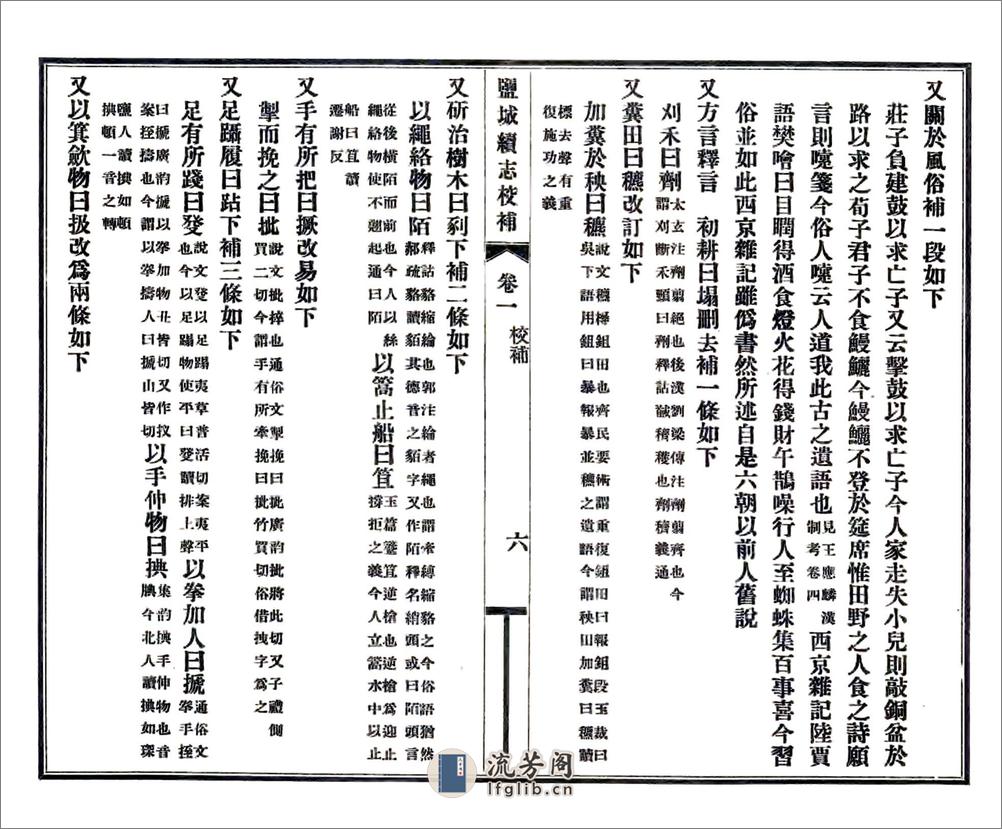 又關於風俗補一段如下
莊子負建鼓以求亡子又云擊鼓以求亡子今人家走失小兒則敲銅盆於
路以求之荀子君子不食鰻鱺今鰻鱺不登於筵席惟田野之人食之詩願
言則嚏箋今俗人嚏云人道我此古之遺語也見王應麟漢制考卷四西京雜記陸賈
語樊噲曰目瞤得酒食燈火花得錢財午鵲噪行人至蜘蛛集百事喜今習
俗並如此西京雜記雖僞書然所述自是六朝以前人舊說
又方言釋言 初耕曰塌刪去補一條如下
刈禾曰劑太玄注劑翦絕也後漢劉梁傳注劑翦齊也今謂刈斷禾頸曰劑釋詁馘穧穫也劑穧義通
又糞田曰穮改訂如下
加糞於秧曰穮說文穮槈鉏田也齊民要術謂重復鉏田曰報鉏段玉裁曰吳下語用鉏曰暴報暴並穮之遺語今謂秧田加糞曰穮讀
標去聲有重復施功之義
鹽城續志校補
卷一
校補
六
又斫治樹木曰剢下補二條如下
以繩絡物曰陌釋詁貉縮綸也郭注綸者繩也謂牽縛縮貉之今俗語猶然郝疏貉讀貊其德音之貊字又作陌釋名綃頭或曰陌頭言
從後橫陌而前也今人以絲繩絡物使不翹起通曰陌以篙止船曰笡玉篇簦笡逆槍也逆槍爲迎止撐拒之義今人立篙水中以止
船曰笡讀遷謝反
又手有所把曰撅改易如下
掣而挽之曰批說文批捽也通俗文掣挽曰批廣韵批將此切又子禮側買二切今謂手有所牽挽曰批竹買切俗借拽字爲之
又足躡履曰跕下補三條如下
足有所踐曰癹說文癹以足蹋夷草普活切案夷平也今以足蹋物使平曰癹讀排上聲以拳加人曰搋通俗文拳手挃
曰搋廣韵搋以拳加物丑皆切又作扠案挃擣也今謂以拳擣人曰搋山皆切以手伸物曰捵集韵捵手伸物也音腆今北人讀捵如琛
鹽人讀捵如頓捵頓一音之轉
又以箕歛物曰扱改爲兩條如下
流芳閣
lfglib.cn